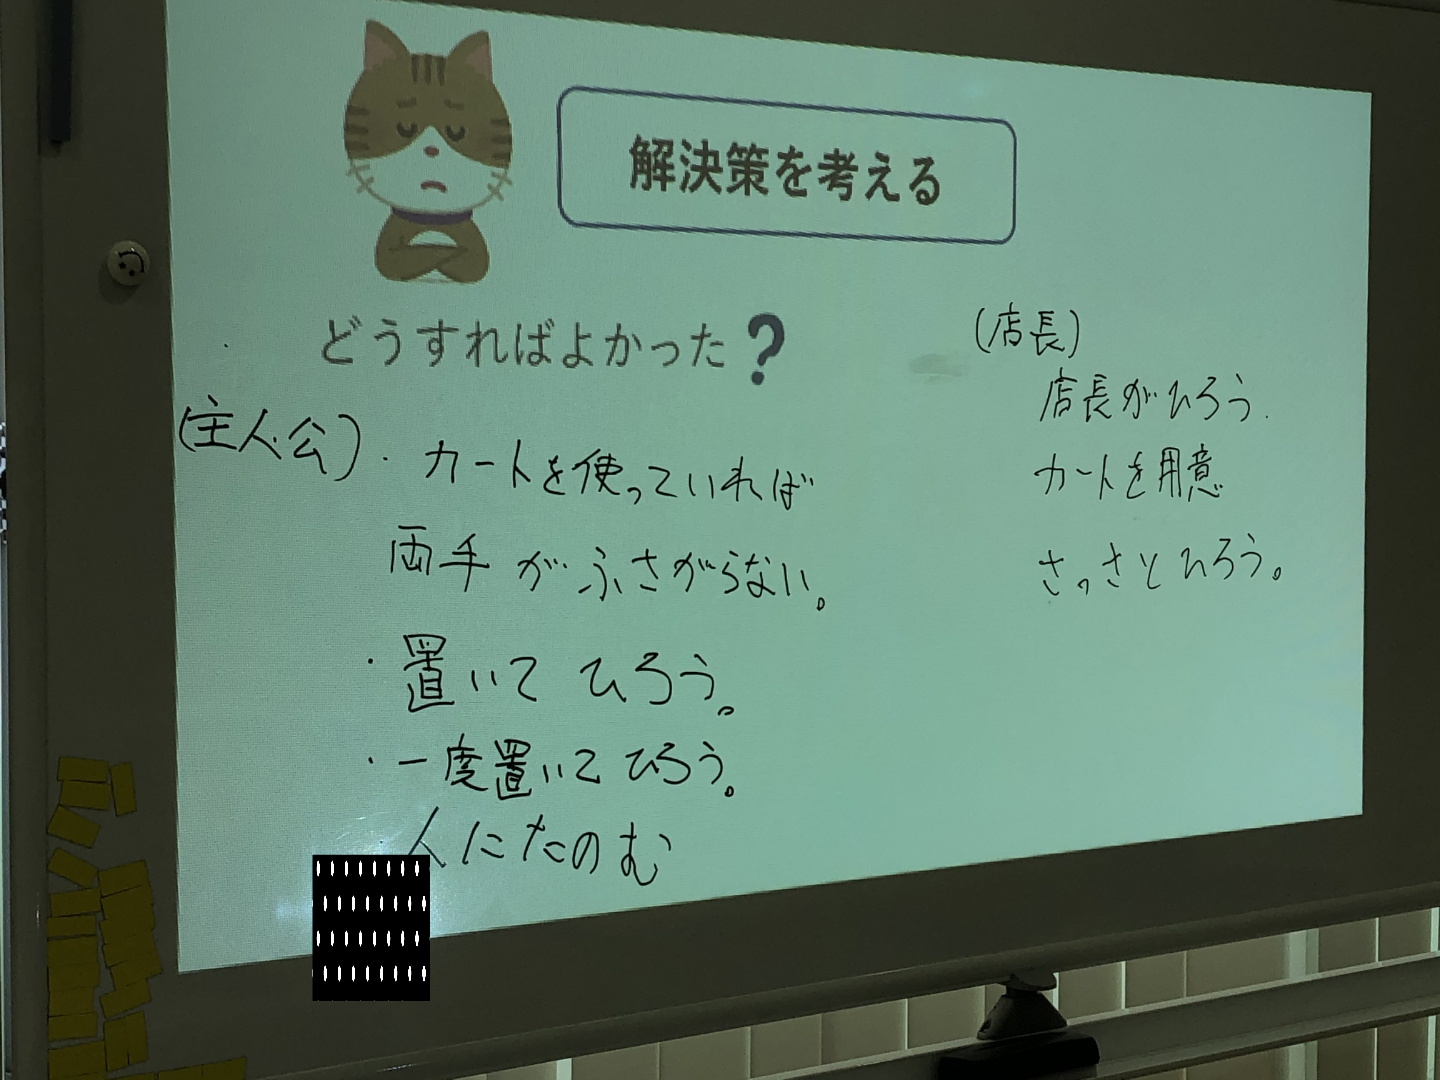 解決策を考える
どうすればよかった?
(主人公)・カートを使っていれば
両手がふさがらない。
・置いてひろう。
・一度置いてひろう。
人にたのむ
(店長)
店長がひろう.
カートを用意
さっさとひろう。